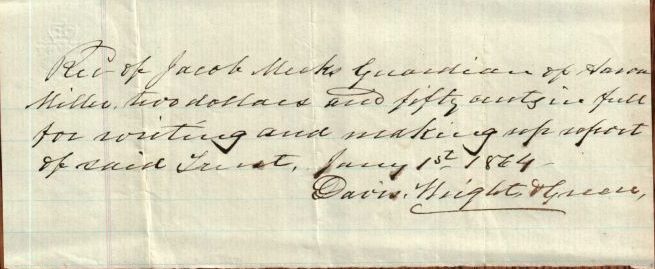 Recd of Jacob Meeks Guardian of Aaron
Miller, two dollars and fifty cents in full
for writing and making up report
of said Trust, Jany 1st 1864
Davis, Wright & Green,